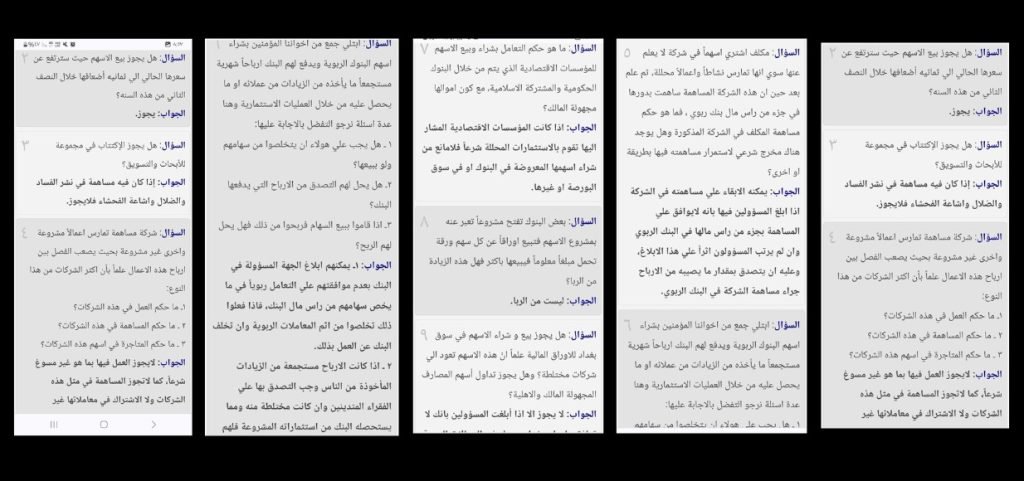 ٢
السؤال: هل يجوز بيع الاسهم حيث سترتفع عن
سعرها الحالي الي ثمانيه أضعافها خلال النصف
الثاني من هذه السنه؟
الجواب: يجوز.
٣
السؤال: هل يجوز الإكتتاب في مجموعة
للأبحاث والتسويق؟
الجواب: إذا كان فيه مساهمة في نشر الفساد
والضلال واشاعة الفحشاء فلايجوز.
٤
السؤال: شركة مساهمة تمارس اعمالاً مشروعة
واخرى غير مشروعة بحيث يصعب الفصل بين
ارباح هذه الاعمال علماً بأن اكثر الشركات من هذا
النوع:
١ـ ما حكم العمل في هذه الشركات؟
٢ ـ ما حكم المساهمة في هذه الشركات؟
٣ ـ ما حكم المتاجرة في اسهم هذه الشركات؟
الجواب: لايجوز العمل فيها بما هو غير مسوغ
شرعاً، كما لاتجوز المساهمة في مثل هذه
الشركات ولا الاشتراك في معاملاتها غير
٥
السؤال: مكلف اشتري اسهماً في شركة لا يعلم
عنها سوي انها تمارس نشاطاً واعمالاً محللة، ثم علم
بعد حين ان هذه الشركة المساهمة ساهمت بدورها
في جزء من راس مال بنك ربوي ، فما هو حكم
مساهمة المكلف في الشركة المذكورة وهل يوجد
هناك مخرج شرعي لاستمرار مساهمته فيها بطريقة
او اخرى؟
الجواب: يمكنه الابقاء علي مساهمته في الشركة
اذا ابلغ المسؤولين فيها بانه لايوافق علي
المساهمة بجزء من راس مالها في البنك الربوي
وان لم يرتب المسؤولون اثراً علي هذا الابلاغ،
وعليه ان يتصدق بمقدار ما يصيبه من الارباح
جراء مساهمة الشركة في البنك الربوي.
٦
السؤال: ابتلي جمع من اخواننا المؤمنين بشراء
اسهم البنوك الربوية ويدفع لهم البنك ارباحاً شهرية
مستجمعاً ما يأخذه من الزيادات من عملائه او ما
يحصل عليه من خلال العمليات الاستثمارية وهنا
عدة اسئلة نرجو التفضل بالاجابة عليها:
١ ـ هل يجب علي هولاء ان يتخلصوا من سهامهم
٧
السؤال: ما هو حكم التعامل بشراء وبيع الاسهم
للمؤسسات الاقتصادية الذي يتم من خلال البنوك
الحكومية والمشتركة الاسلامية، مع كون اموالها
مجهولة المالك؟
الجواب: اذا كانت المؤسسات الاقتصادية المشار
اليها تقوم بالاستثمارات المحللة شرعاً فلامانع من
شراء اسهمها المعروضة في البنوك او في سوق
البورصة او غيرها.
٨
السؤال: بعض البنوك تفتح مشروعاً تعبر عنه
بمشروع الاسهم فتبيع اوراقاً عن كل سهم ورقة
تحمل مبلغاً معلوماً فيبيعها باكثر فهل هذه الزيادة
من الربا؟
الجواب: ليست من الربا.
٩
السؤال: هل يجوز بيع و شراء الاسهم في سوق
بغداد للاوراق المالية علماً انّ هذه الاسهم تعود الي
شركات مختلطة؟ وهل يجوز تداول أسهم المصارف
المجهولة المالك والاهلية؟
الجواب: لا يجوز الا اذا أبلغت المسؤولين بانك لا
السؤال: ابتلي جمع من اخواننا المؤمنين بشراء
اسهم البنوك الربوية ويدفع لهم البنك ارباحاً شهرية
مستجمعاً ما يأخذه من الزيادات من عملائه او ما
يحصل عليه من خلال العمليات الاستثمارية وهنا
عدة اسئلة نرجو التفضل بالاجابة عليها:
١ ـ هل يجب علي هولاء ان يتخلصوا من سهامهم
ولو ببيعها؟
٢ـ هل يحل لهم التصدق من الارباح التي يدفعها
البنك؟
٣ـ اذا قاموا ببيع السهام فربحوا من ذلك فهل يحل
لهم الربح؟
الجواب: ١ـ يمكنهم ابلاغ الجهة المسؤولة في
البنك بعدم موافقتهم علي التعامل ربوياً في ما
يخص سهامهم من راس مال البنك، فاذا فعلوا
ذلك تخلصوا من اثم المعاملات الربوية وان تخلف
البنك عن العمل بذلك.
٢ ـ اذا كانت الارباح مستجمعة من الزيادات
المأخوذة من الناس وجب التصدق بها علي
الفقراء المتدينين وان كانت مختلطة منه ومما
يستحصله البنك من استثماراته المشروعة فلهم
٢
السؤال: هل يجوز بيع الاسهم حيث سترتفع عن
سعرها الحالي الي ثمانيه أضعافها خلال النصف
الثاني من هذه السنه؟
الجواب: يجوز.
٣
السؤال: هل يجوز الإكتتاب في مجموعة
للأبحاث والتسويق؟
الجواب: إذا كان فيه مساهمة في نشر الفساد
والضلال واشاعة الفحشاء فلايجوز.
٤
السؤال: شركة مساهمة تمارس اعمالاً مشروعة
واخرى غير مشروعة بحيث يصعب الفصل بين
ارباح هذه الاعمال علماً بأن اكثر الشركات من هذا
النوع:
١ـ ما حكم العمل في هذه الشركات؟
٢ ـ ما حكم المساهمة في هذه الشركات؟
٣ ـ ما حكم المتاجرة في اسهم هذه الشركات؟
الجواب: لايجوز العمل فيها بما هو غير مسوغ
شرعاً، كما لاتجوز المساهمة في مثل هذه
الشركات ولا الاشتراك في معاملاتها غير